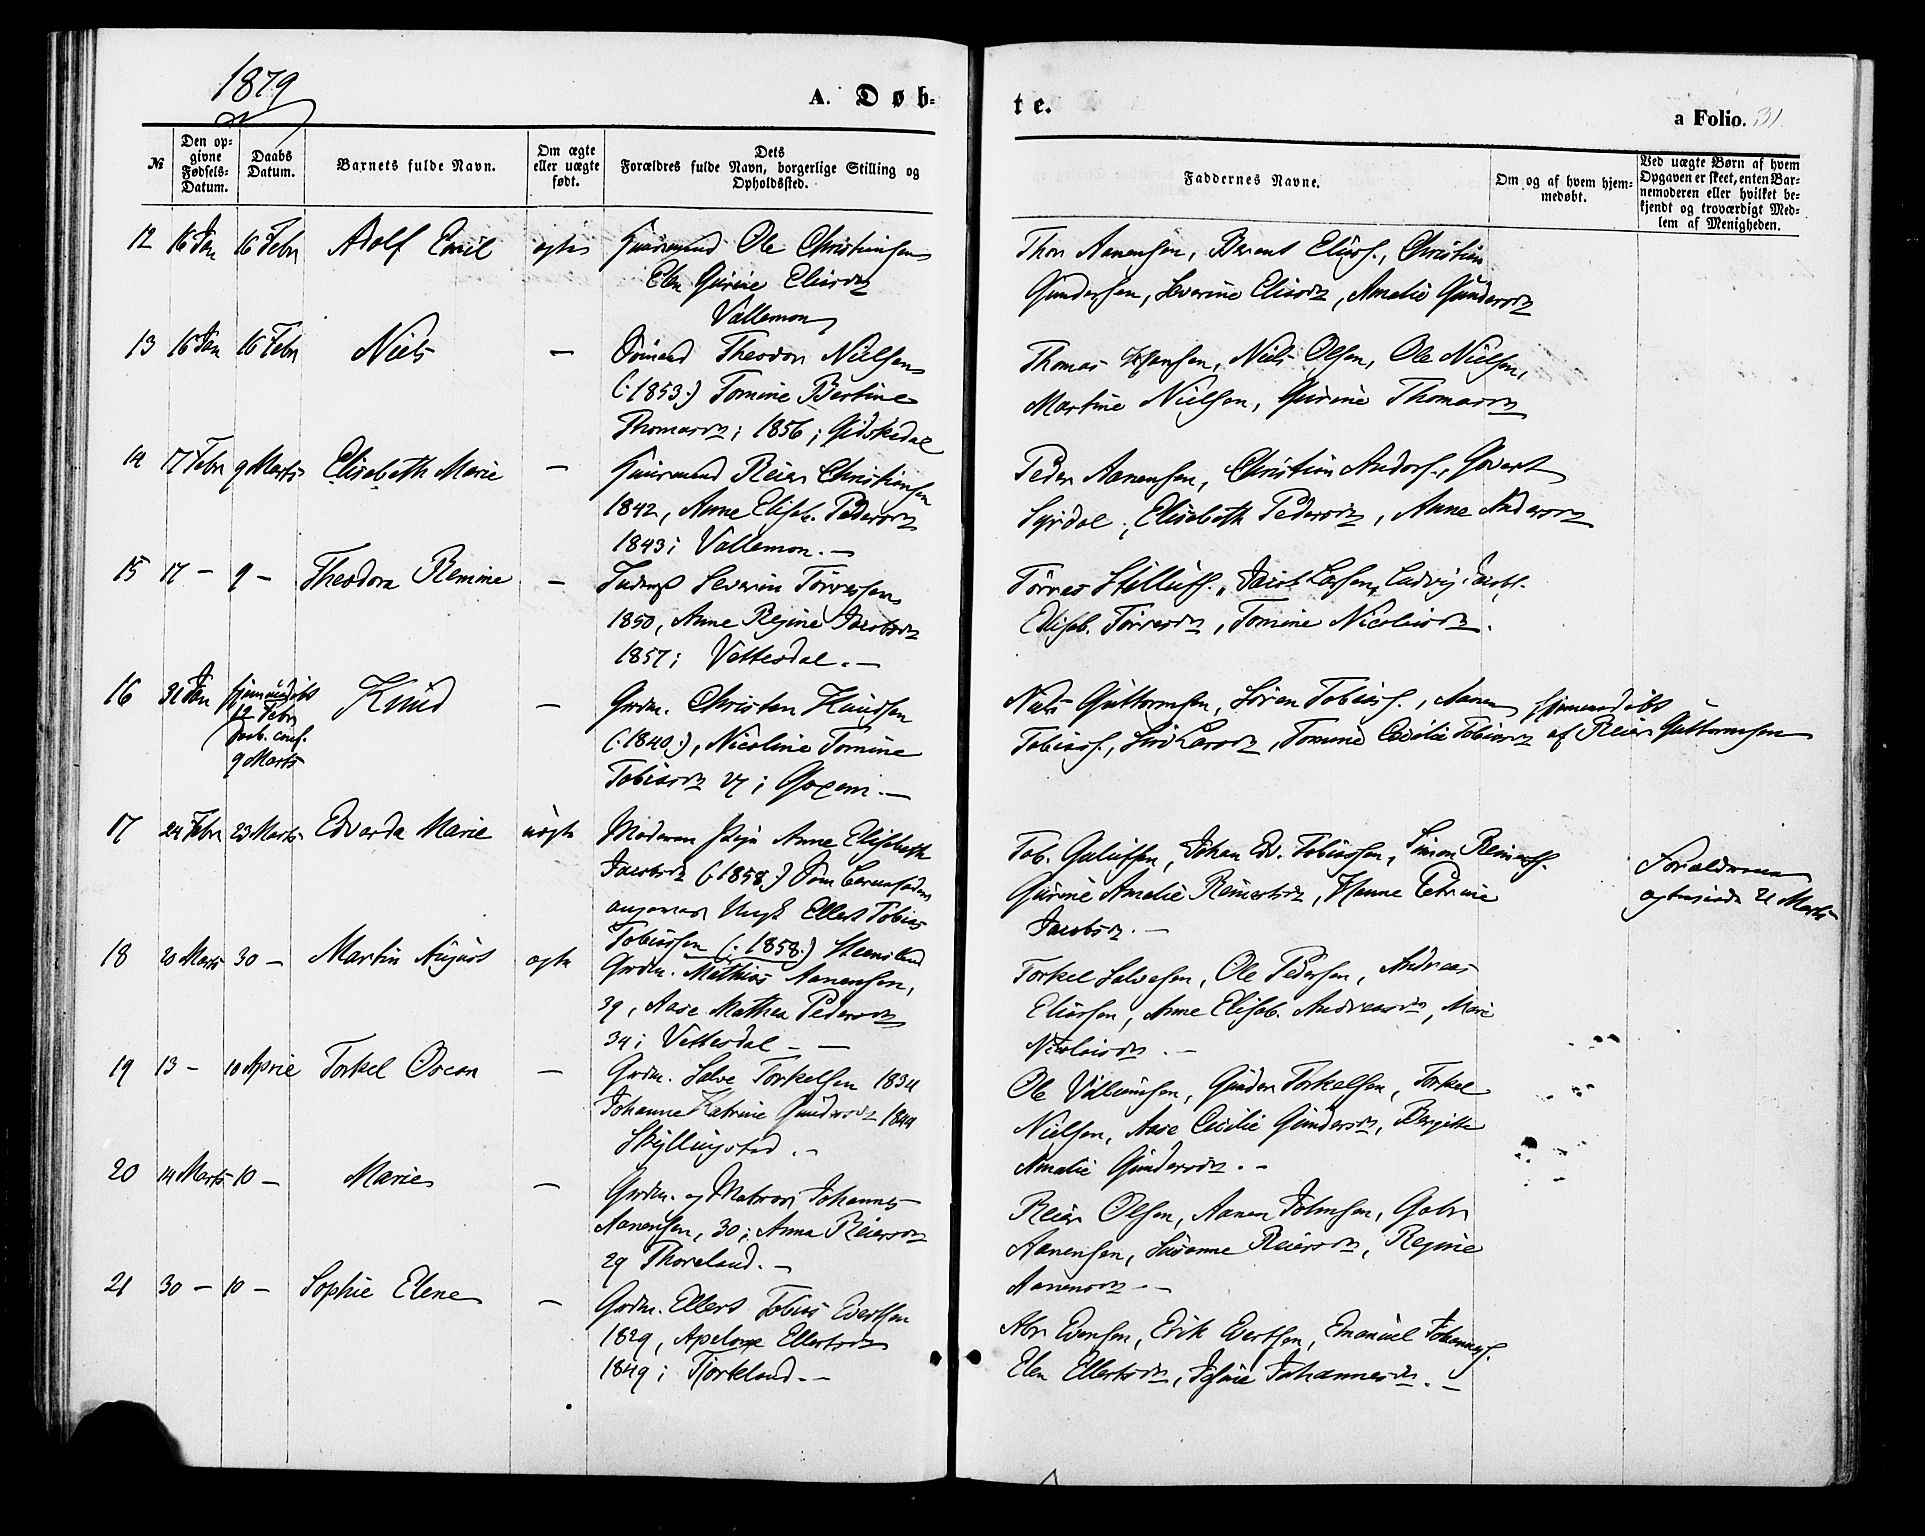 1879
A. Døb-
te.
a Folio. 31.
№
Den op-
givne
Fødsels-
Datum.
Daabs
Datum.
Barnets fulde Navn.
Om ægte
eller uægte
født.
Dets
Forældres fulde Navn, borgerlige Stilling og
Opholdssted.
Faddernes Navne.
Om og af hvem hjem-
medøbt.
Ved uægte Børn af hvem
Opgaven er skeet, enten Bar-
nemoderen eller hvilket be-
kjendt og troværdigt Med-
lem af Menigheden.
12 16 Jan 16 Febr Adolf Emil Ole Christensen
Elen Gurine Eliasdtr
Vallemon
Thor Aanensen, Berent Eliass., Christian
Gundersen, Severine Eliasdtr, Amalie Gundersdtr
13 16 Jan 16 Febr Niels — Theodor Nielsen
(:1853:) Tomine Bertine
Thomasdtr; 1856; Gidskedal
Thomas Hansen, Niels Olsen, Ole Nielsen,
Martine Nielsen, Gurine Thomasdtr
14 17 Febr 9 Marts Elisabeth Marie — Reier Christiansen
1842, Anne Elisab. Pedersdtr
1843; Vallemon. —
Peder Aanensen, Christian Anders., Govert
Syrdal, Elisabeth Pedersdtr, Anne Andersdtr
15 17 — 9 — Theodora Remine — Severin Tørressen
1850, Anne Regine Jacobsdtr
1857; Vettesdal. —
Tørres Jacob Larsen, Ludvig Jacobs.
Elisab. Tørresdtr, Tomine Nicolaisdtr.
16 31 Jan hjemmedøbt
12 Febr
9 Marts
Knud — Grdm. Christen Knudsen
(:1840:), Nicoline Tomine
Tobiasdtr
Niels Guttormsen, Søren Tobiass., Aanen
Tobiass., Siri Larsdtr, Tomine Cecilie Tobiasdtr
hjemmedøbt
af Reier Guttormsen
17 24 Febr 23 Marts Edvarda Marie uægte Moderen Pige Anne Elisabeth
Jacobsdtr (:1858:) Som Barnefader
angives Ungk Ellert Tobias
Tobiassen (:1858:) Steensland
Tob. Johan Ed. Tobiassen, Simon Reinerts.
Gurine Amalie Reinertsdtr, Hanne Petrine
Jacobsdtr. —
Forældrene
21 Marts
18 20 Marts 30 — Martin August ægte Grdm. Mathias Aanensen,
39, Aase Mathea Pedersdtr
34; Vettesdal — —
Torkel Salvesen, Ole Pedersen, Andreas
Eliassen, Anne Elisab. Andreasdtr, Marie
Nicolaisdtr. —
19 13 — 10 April Torkel Oscar — Grdm. Salve Torkelsen 1834
Johanne Katrine Gundersdtr 1844
Skyllingstad. —
Ole Villumsen, Gunder Torkelsen, Torkel
Nielsen, Aase Cecilie Gundersdtr, Bergitte
Amalie Gundersdtr. —
20 14 Marts 10 — Marie — Grdm. og Matros Johannes
Aanensen, 30; Anna Reiersdtr
29 Thoreland. —
Reier Olsen, Aanen Johnsen, Gabr
Aanensen, Susanne Reiersdtr, Regine
Aanensdtr —
21 30 — 10 — Sophie Elene — Grdm. Ellert Tobias Evertsen
1829, Apelone Ellertsdtr
1849; Tjorkland. —
Abr Evensen, Erik Evertsen, Emanuel Johanness.
Elen Ellertsdtr, Johannesdtr. —